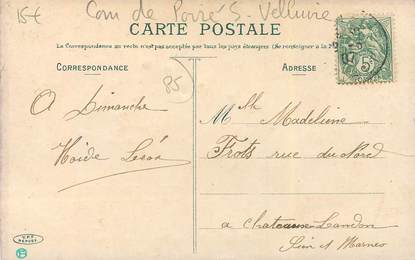 15€ Com de Poiré S. Velluire
CARTE POSTALE
La Correspondance au recto n'est pas acceptée par tous les pays étrangers (Se renseigner à la
CORRESPONDANCE
ADRESSE
85
A Dimanche
M Madeleine
Frots rue du Nord
a Chateau-Landon
Sein et Marne
DÉPOSÉ